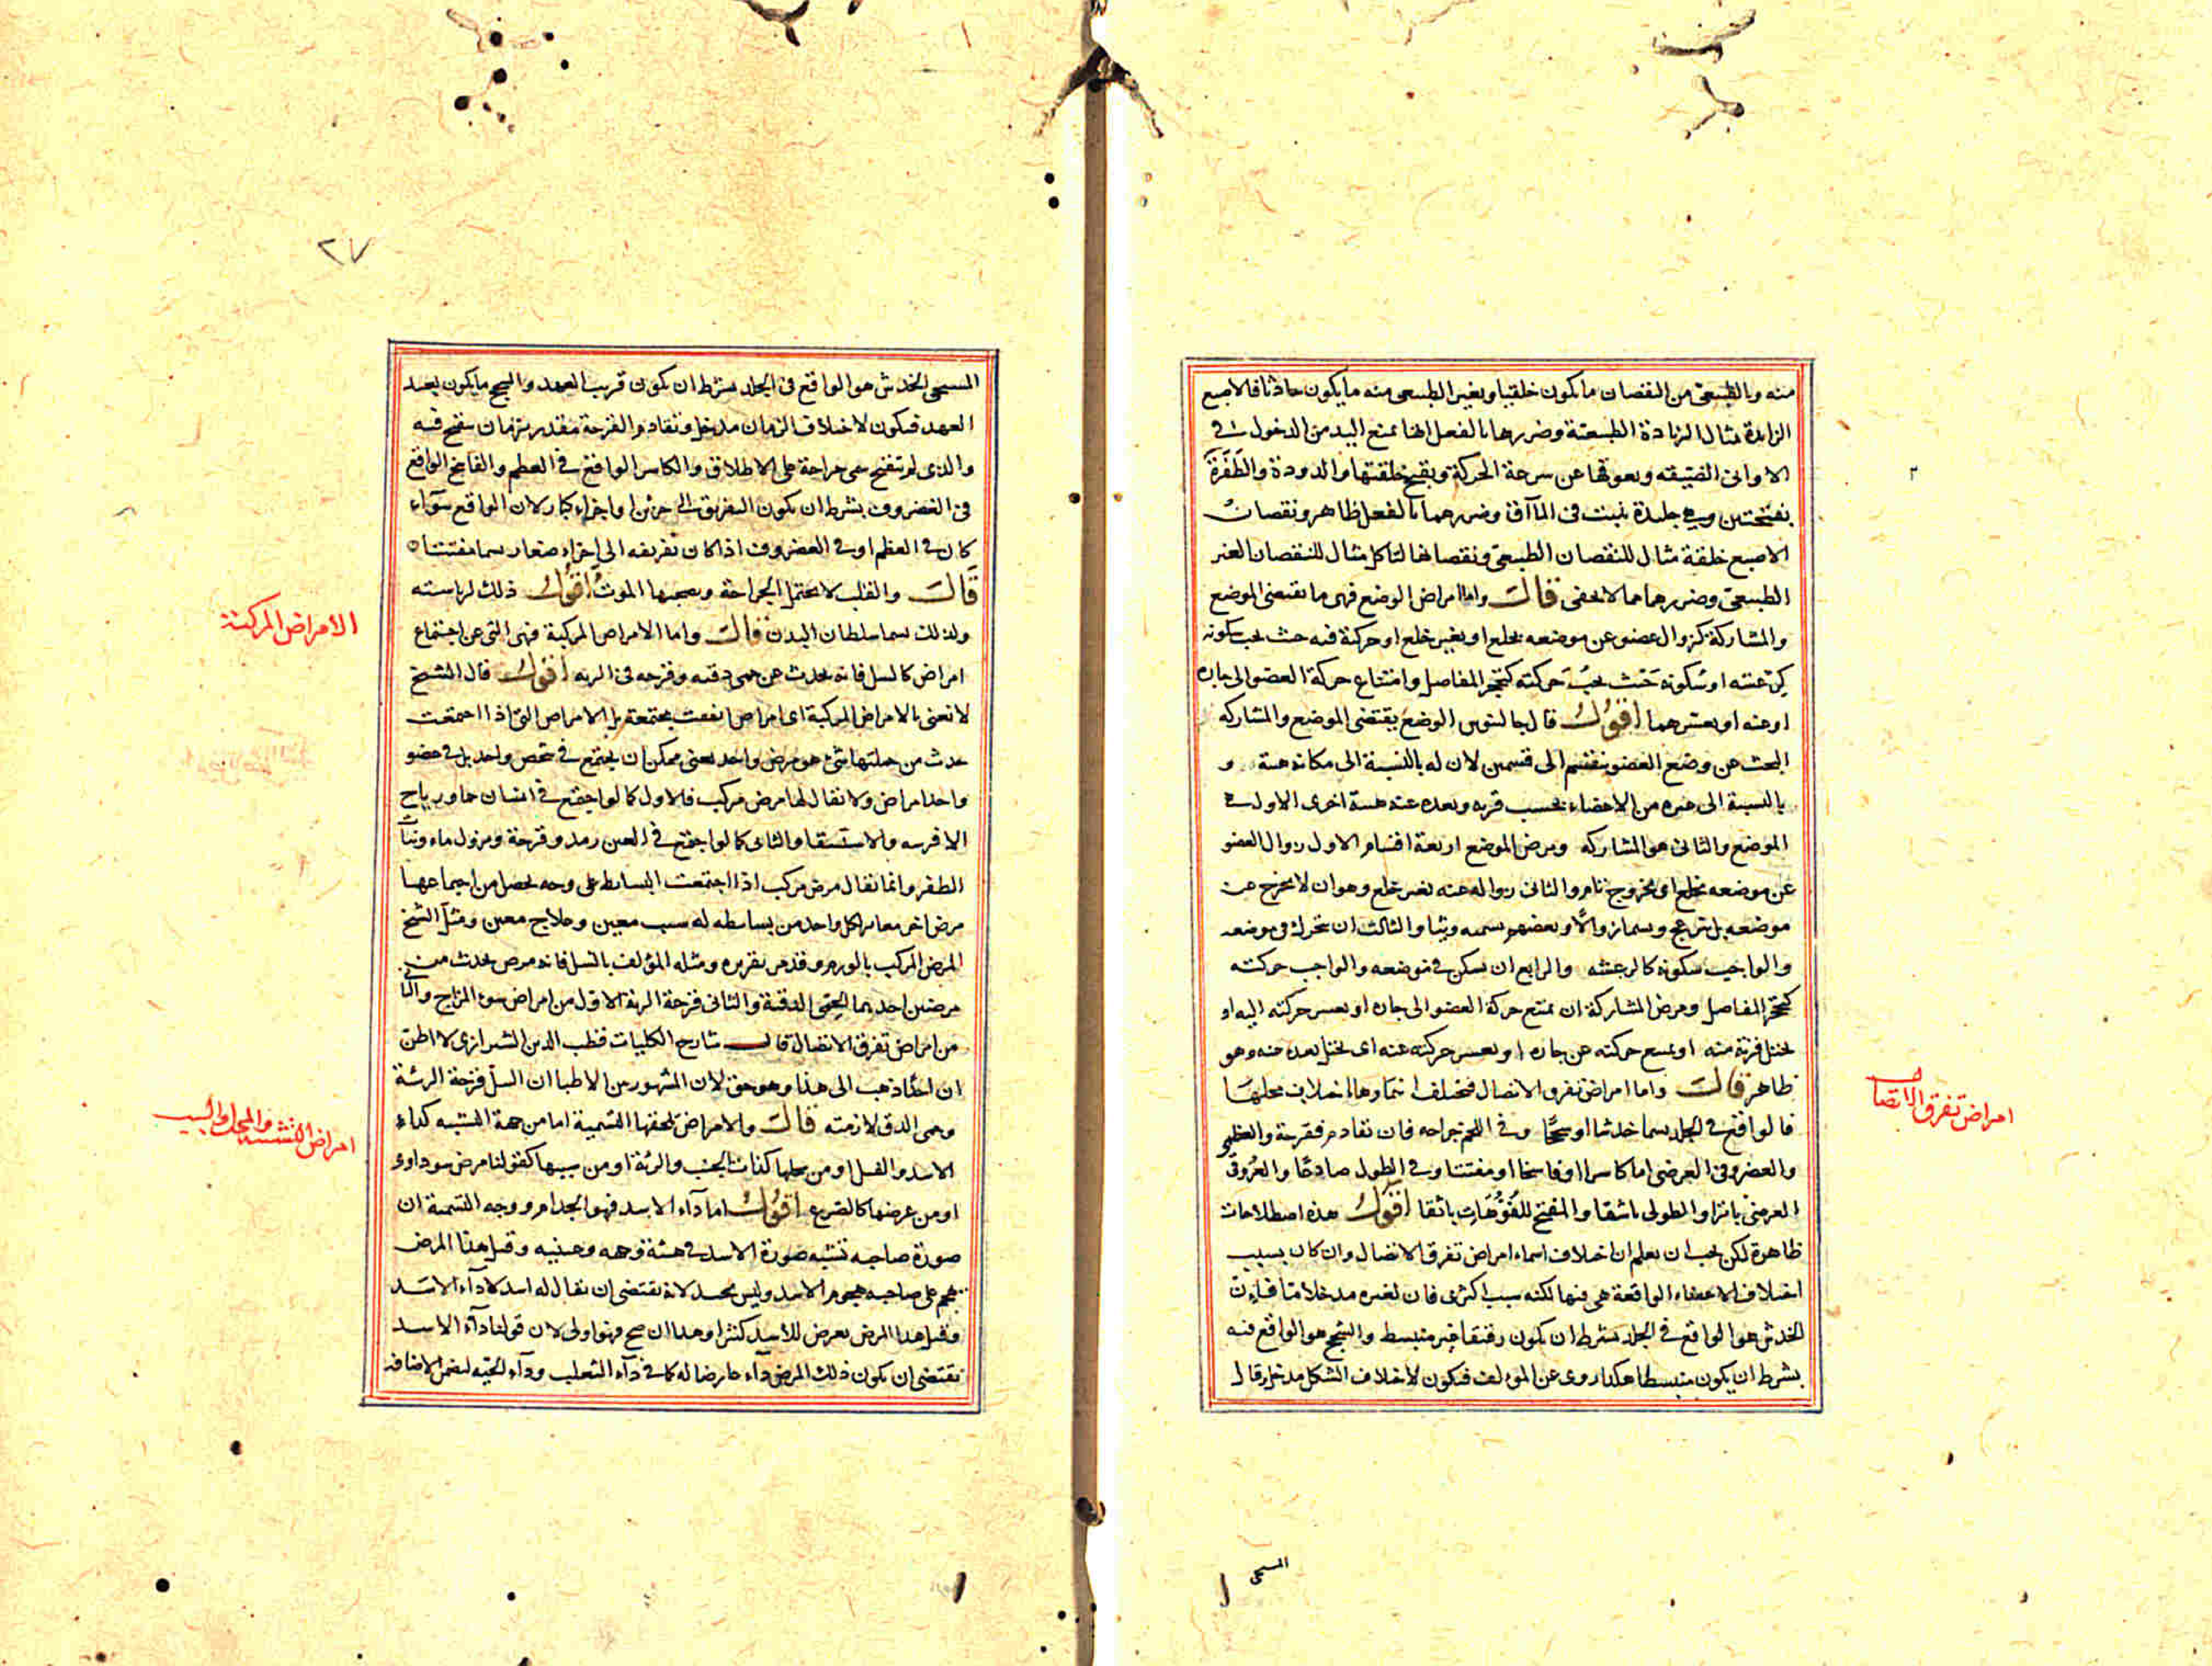 منه وبالطبيعى من النقصان ما يكون خلقيا وبغير الطبيعى منه ما يكون حادثا فالاصبع
الزايدة مثال الزيادة الطبيعية وضررها بالفعل انها تمنع اليد من الدخول فى
الاوانى الضيقه ويعوقها عن سرعة الحركة ويقبح خلقتها والدودة والظفرة
بفتحتين وهى جليدة تنبت فى المآقى وضررهما بالفعل ظاهر ونقصان
الاصبع خلقة مثال للنقصان الطبيعى ونقصانها لتاكل مثال للنقصان الغير
الطبيعى وضررهما مما لا يخفى قال واما امراض الوضع فهى ما يقتضى الموضع
والمشاركة كزوال عضو عن موضعه بخلع او بغير خلع او حركة فيه حيث يجب سكونه
كرعشه او سكونه حيث يجب حركته كتحجر المفاصل وامتناع حركة العضو الى جاره
او عنه او بعسرهما اقول قال جالينوس الوضع يقتضى الموضع والمشاركه
البحث عن وضع العضو ينقسم الى قسمين لان له بالنسبة الى مكانه هيئة و
بالنسبة الى غيره من الاعضاء بحسب قربه وبعده عنه هيئة اخرى الاول هى
الموضع والثانى هو المشاركه ومرض الموضع اربعة اقسام الاول زوال العضو
عن موضعه بخلع او بخروج تام والثانى زواله عنه بغير خلع وهو ان لا يخرج عن
موضعه بل ينزعج ويسما زوالًا وبعضهم يسميه وثيا والثالث ان يتحرك فى موضعه
والواجب سكونه كالرعشه والرابع ان يسكن فى موضعه والواجب حركته
كتحجر المفاصل ومرض المشاركة ان تمتنع حركة العضو الى جاره او يعسر حركته اليه او
يختل قربه منه او يمتنع حركته عن جاره او يعسر حركته عنه اى يختل بعده عنه وهو
ظاهر قال واما امراض تفرق الاتصال فيختلف اسماوها باختلاف محلها
فالواقع فى الجلد يسما خدشا او سحجًا وفى اللحم جراحه فان تقادم فقرحة والعظم
والغضروف العرضى اما كاسرا او فاسخا او مفتتا وفى الطول صادعًا والعروق
العرضى باترا والطولى باشقا والمفتح للفُوَّهات باثقا اقول هذه اصطلاحات
ظاهرة لكن يجب ان يعلم ان اختلاف اسماء امراض تفرق الاتصال وان كان بسبب
اختلاف الاعضاء الواقعة هى فيها لكنه سبب اكثرى فان لغيره مدخلا ما فان
الخدش هو الواقع فى الجلد بشرط ان يكون رقيقا غير منبسط والسحج هو الواقع فيه
بشرط ان يكون منبسطا هكذا روى عن المولف فيكون لاختلاف الشكل مدخل وقال
المسيحى
امراض تفرق الاتصال
٢٧
المسيحى الخدش هو الواقع فى الجلد بشرط ان يكون قريب العهد والسحج ما يكون بعيد
العهد فيكون لاختلاف الزمان مدخل وتقادم القرحة مقدر بزمان يتقيح فيه
والذى لم يتقيح سمى جراحة على الاطلاق والكاسر الواقع فى العظم والفاسخ الواقع
فى الغضروف بشرط ان يكون التفريق الى جزئين او اجزاء كبار لان الواقع سوآء
كان فى العظم او فى الغضروف اذا كان تفريقه الى اجزاء صغار يسما مفتتا
قال والقلب لا يحتمل الجراحة ويعجبها الموت اقول ذلك لرياسته
ولذلك يسما سلطان البدن قال واما الامراض المركبة فهى التى عن اجتماع
امراض كالسل فانه يحدث عن حمى دقيه وقرحه فى الريه اقول قال الشيخ
لا نعنى بالامراض المركبة اى امراض اتفقت مجتمعة بل الامراض التى اذا اجتمعت
حدث من جملتها شئ هو مرض واحد يعنى ممكن ان يجتمع فى شخص واحد بل فى عضو
واحد امراض ولا يقال لها مرض مركب فالاول كما لو اجتمع فى انسان حما ورياح
الافرسه والاستسقا والثانى كما لو اجتمع فى العين رمد وقرحة ونزول ماء ونبات
الظفر وانما يقال مرض مركب اذا اجتمعت البسايط على وجه يحصل من اجتماعها
مرض اخر مغاير لكل واحد من بسايطه له سبب معين وعلاج معين ومثل الشيخ
المرض المركب بالورم وقد مر تقريره ومثله المؤلف بالسل فانه مرض يحدث من
مرضين احديهما الحمى الدقية والثانى قرحة الرية الاول من امراض سوء المزاج والثانى
من امراض تفرق الاتصال قال شارح الكليات قطب الدين الشيرازى لا اظن
ان احدًا ذهب الى هذا وهو حق لان المشهور من الاطبا ان السل قرحة الرئة
وحمى الدق لازمته قال والامراض يلحقها التسمية اما من جهة التشبيه كداء
الاسد والفيل او من محلها كذات الجنب والرئة او من سببها كقولنا مرض سوداوى
او من عرضها كالصرع اقول اما دآء الاسد فهو الجذام ووجه التسمية ان
صورة صاحبه تشبه صورة الاسد فى هيئة وجهه وعينيه وقيل هذا المرض
يهجم على صاحبه هجوم الاسد وليس بجيد لانه يقتضى ان يقال له اسد لا دآء الاسد
وقيل هذا المرض يعرض للاسد كثيرا وهذا ان صح فهو اولى لان قولنا دآء الاسد
يقتضى ان يكون ذلك المرض دآء عارضا له كما فى دآء الثعلب ودآء الحيه لبعض الاضافه
الامراض المركبة
امراض التشبيه والمحل والسبب